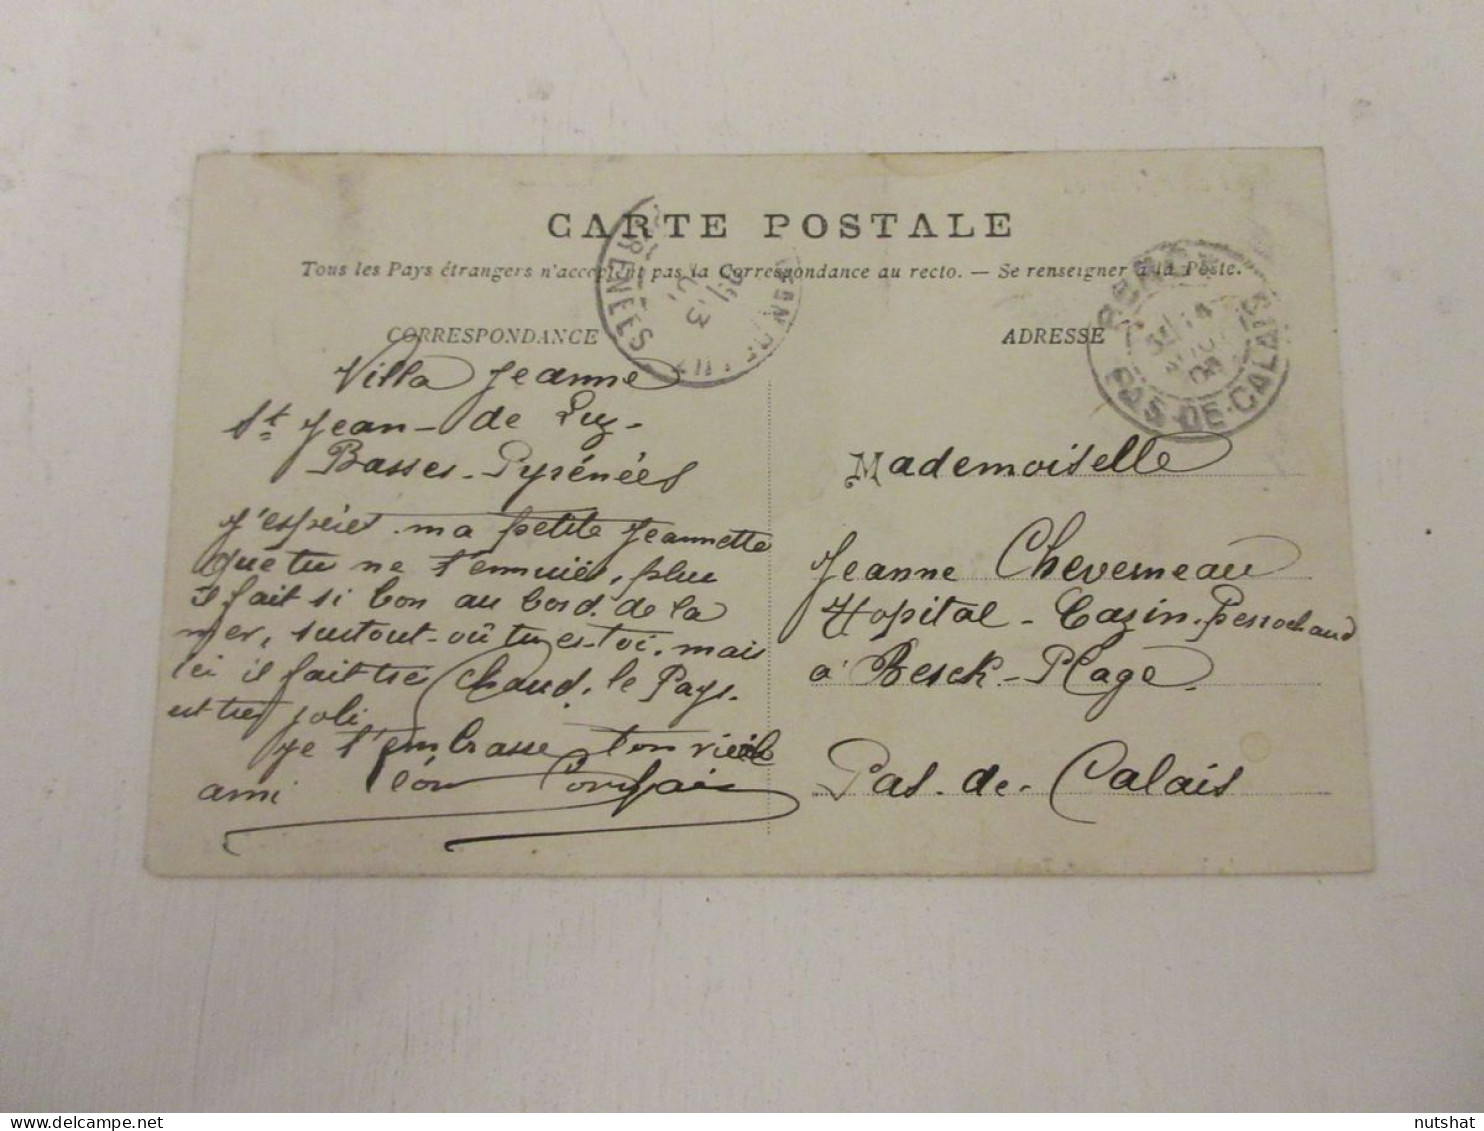 CARTE POSTALE
Tous les Pays étrangers n'acceptent pas la Correspondance au recto. — Se renseigner à la Poste.
CORRESPONDANCE
Villa Jeanne
St Jean-de Luz-
Basses-Pyrénées
J'espère ma petite Jeannette
que tu ne t'ennuies, plus
il fait si bon au bord de la
mer, surtout où tu es-toi. mais
ici il fait très chaud. le Pays
est très joli
je t'embrasse ton vieil
ami Léon
RENEES
ADRESSE
PAS-DE-CALAIS
Mademoiselle
Jeanne Cheverneau
Hopital - Cazin-Perrochaud
à Berck-Plage
Pas-de-Calais
nutshat